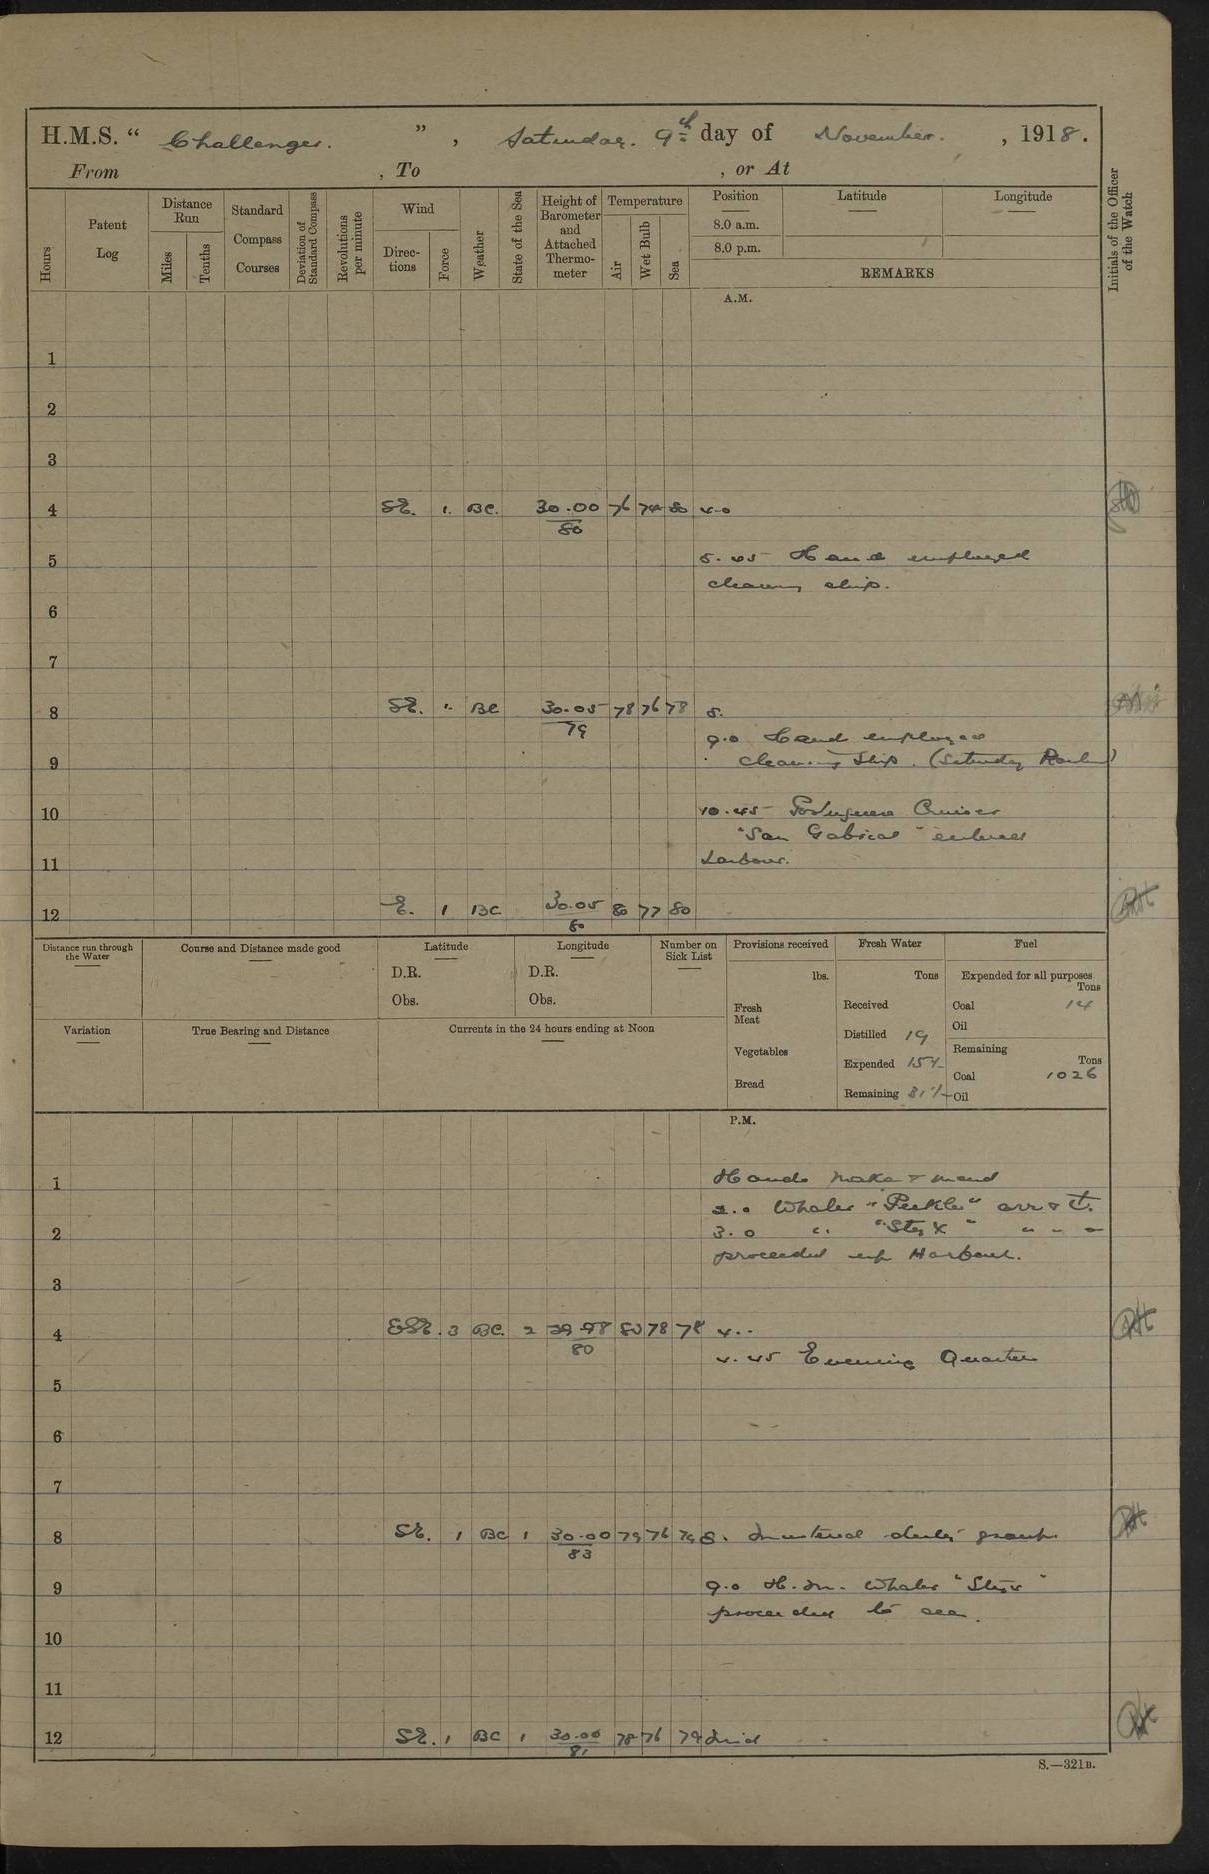 H.M.S. “ Challenger. ” , Saturday. 9th day of November. , 1918.
From , To , or At
Hours
Patent Log
Distance Run
Miles
Tenths
Standard Compass Courses
Deviation of Standard Compass
Revolutions per minute
Wind
Direc-tions
Force
Weather
State of the Sea
Height of Barometer and Attached Thermo-meter
Temperature
Air
Wet Bulb
Sea
Position
8.0 a.m.
8.0 p.m.
Latitude
Longitude
REMARKS
Initials of the Officer of the Watch
A.M.
1
2
3
4 SE. 1. BC. 30.00 76 74 80 4.0
80
5 5.45 Hands employed
cleaning ship.
6
7
8 SE. 1. BC 30.05 78 76 78 8.
79
9.0 Hands employed
9 cleaning ship. (Saturday Routine)
10 10.45 Portuguese Cruiser
"San Gabriel" entered
11 harbour.
12 E. 1 BC 30.05 80 77 80
80
Distance run through the Water
Course and Distance made good
Latitude
D.R.
Obs.
Longitude
D.R.
Obs.
Number on Sick List
Provisions received
lbs.
Fresh Meat
Vegetables
Bread
Fresh Water
Tons
Received
Distilled 19
Expended 15
Remaining 81
Fuel
Expended for all purposes
Tons
Coal 14
Oil
Remaining
Tons
Coal 1026
Oil
Variation
True Bearing and Distance
Currents in the 24 hours ending at Noon
P.M.
1 Hands make & mend
2.0 Whaler "Peekle" arr & t.
2 3.0 " "Styx" " " "
proceeded up Harbour.
3
4 ESE. 3 BC. 2 29.98 80 78 78 4..
80
4.45 Evening Quarters
5
6
7
8 SE. 1 BC 1 30.00 79 76 79 8. Mustered duty group.
83
9 9.0 H.M. Whaler "Styx"
proceeded to sea.
10
11
12 SE. 1 BC 1 30.00 78 76 79 Mid
81
S.—321B.